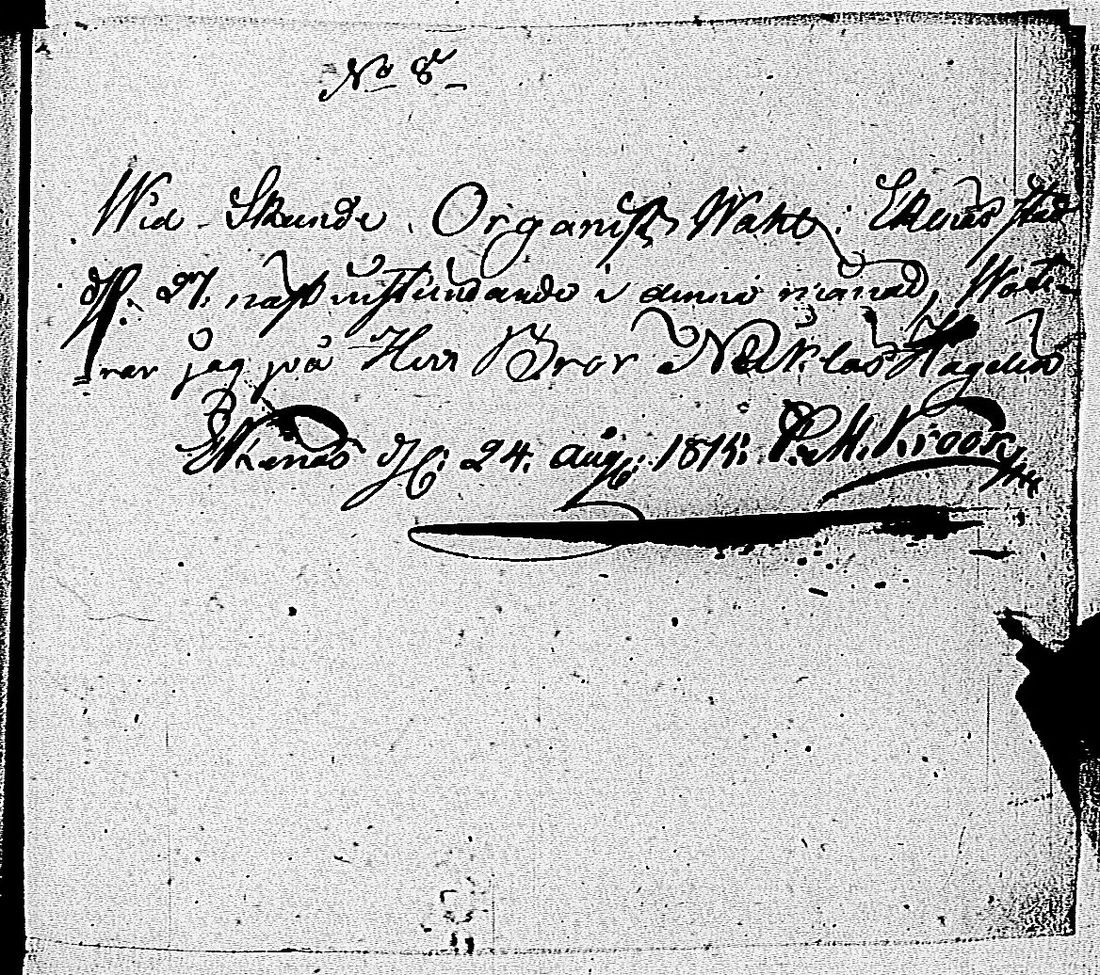 No 8
Wid Skeende Organist Wahl i Ekenäs stad
d. 27. näst instundande i denne månad, Wote-
rar jag på Herr Bror Niklas Hagelin
Ekenäs d. 24. Aug: 1815: P. M. Krook